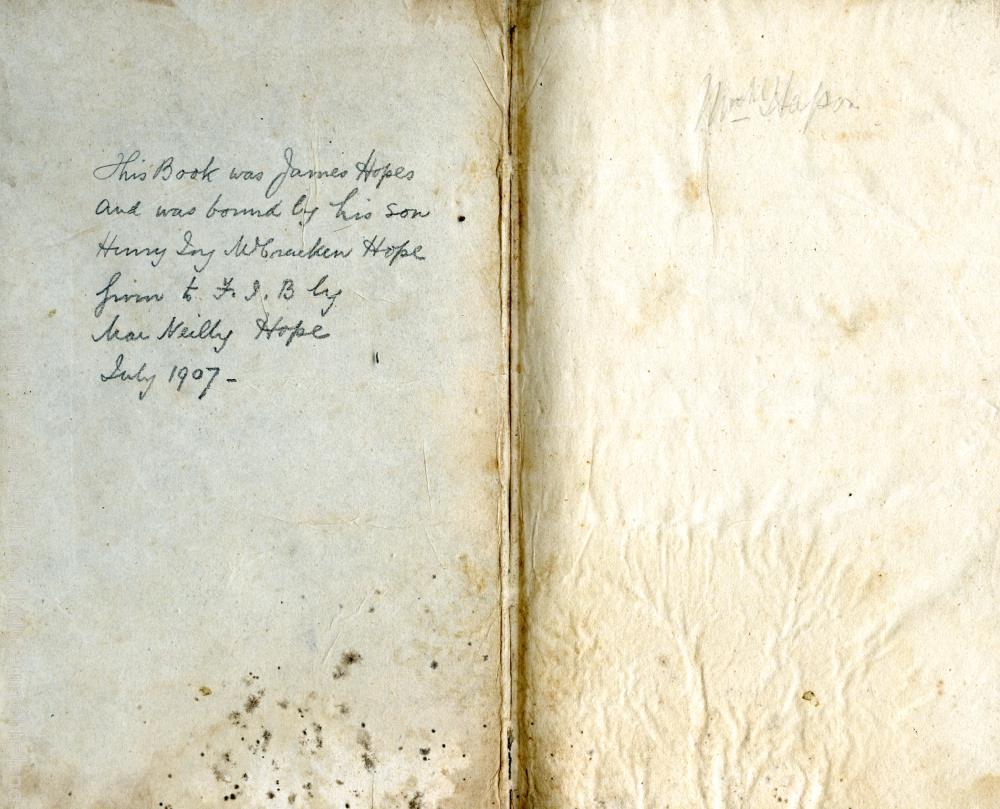 This Book was James Hopes
and was bound by his son
Henry Joy McCracken Hope
given to F. J. B by
Mac Neilly Hope
July 1907 -